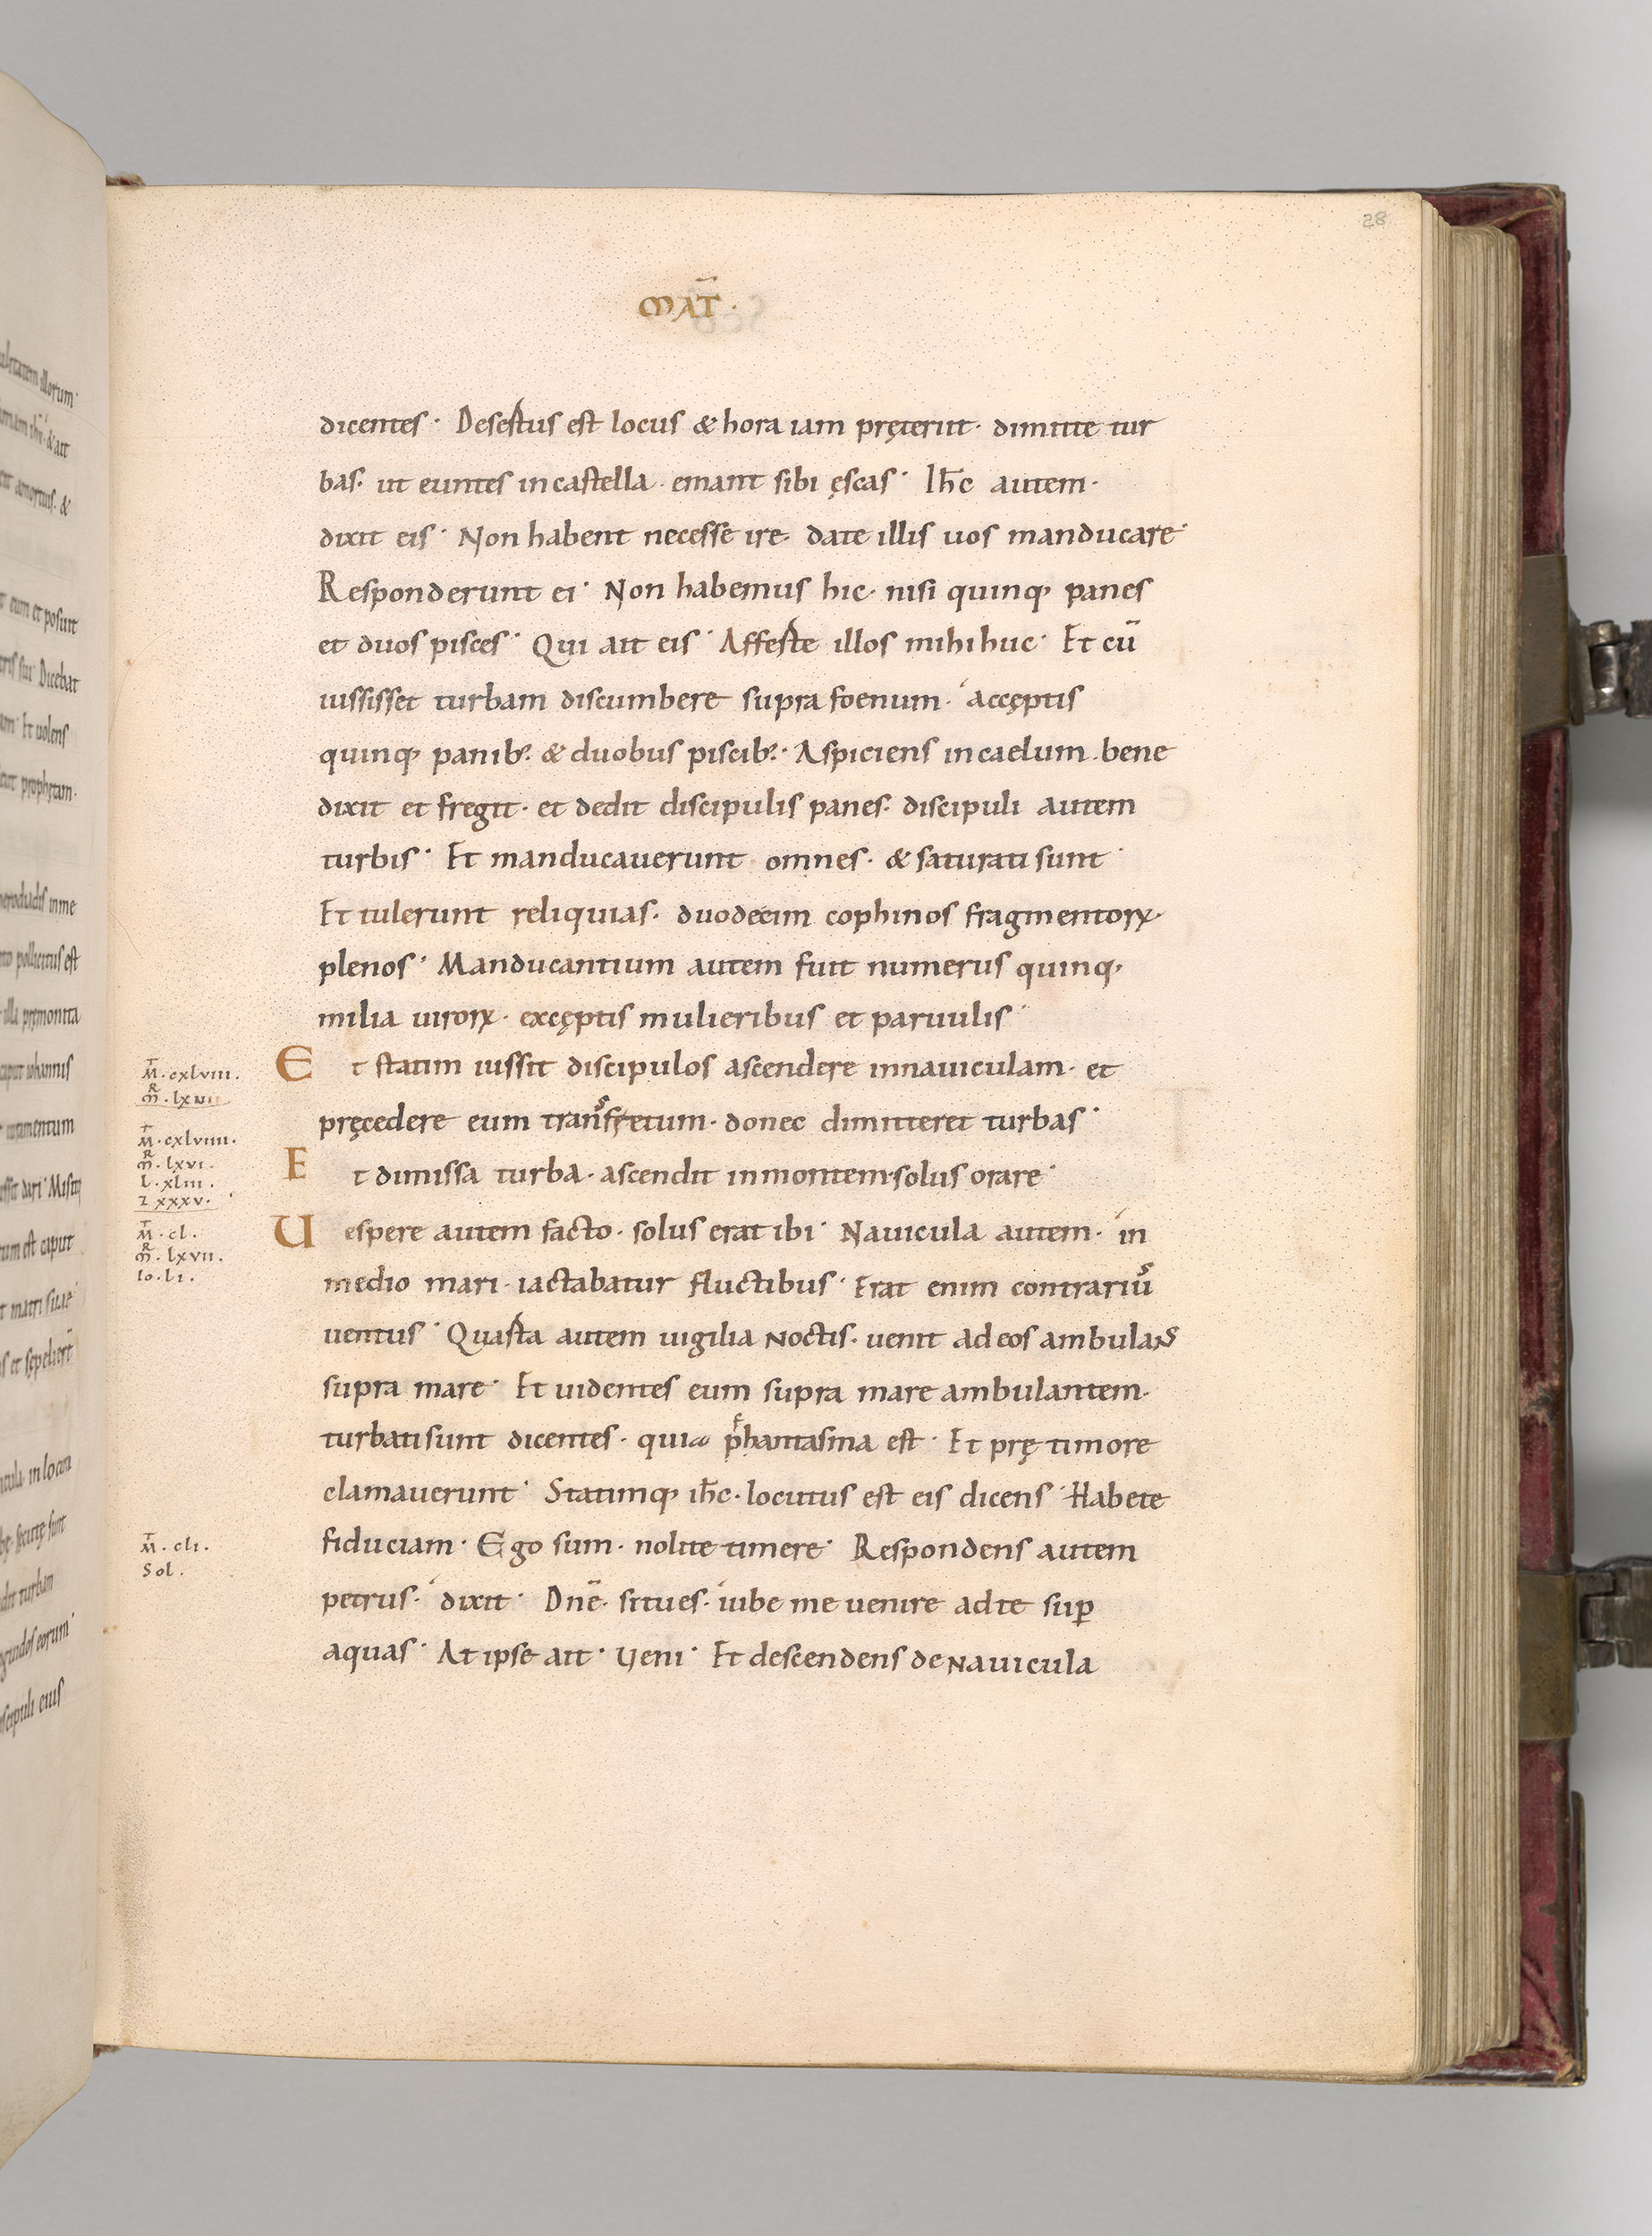 28
MAT̄ ·
dicentes · Desertus est locus & hora iam pręteriit · dimitte tur
bas · ut euntes in castella · emant sibi ęscas · Ih̄c autem ·
dixit eis · Non habent necesse ire · date illis uos manducare ·
Responderunt ei · Non habemus hic · nisi quinq; panes
et duos pisces · Qui ait eis · Afferte illos mihi huc · Et cū
iussisset turbam discumbere supra foenum · accęptis
quinq; panib; · & duobus piscib; · Aspiciens in caelum · bene
dixit et fregit · et dedit discipulis panes · discipuli autem
turbis · Et manducauerunt omnes · & saturati sunt ·
Et tulerunt reliquias · duodecim cophinos fragmentoꝝ ·
plenos · Manducantium autem fuit numerus quinq;
milia uiroꝝ · excęptis mulieribus et paruulis ·
Et statim iussit discipulos ascendere in nauiculam · et
pręcedere eum transfretum · donec dimitteret turbas ·
Et dimissa turba · ascendit in montem · solus orare ·
Uespere autem facto · solus erat ibi · Nauicula autem · in
medio mari · iactabatur fluctibus · Erat enim contrarius
uentus · Quarta autem uigilia noctis · uenit ad eos ambulans
supra mare · Et uidentes eum supra mare ambulantem ·
turbati sunt dicentes · quia phantasma est · Et prę timore
clamauerunt · Statimq; ih̄c · locutus est eis dicens · Habete
fiduciam · Ego sum · nolite timere · Respondens autem
petrus · dixit · Dn̄e · si tu es · iube me uenire ad te suꝑ
aquas · At ipse ait · Ueni · Et descendens de nauicula
M̄ · cxlviii ·
M̄ · cxlviiii ·
m̄ · lxvi ·
l · xliii ·
I xxxv ·
M̄ · cl ·
m̄ · lxvii ·
Io · li ·
M̄ · cli ·
Sol ·